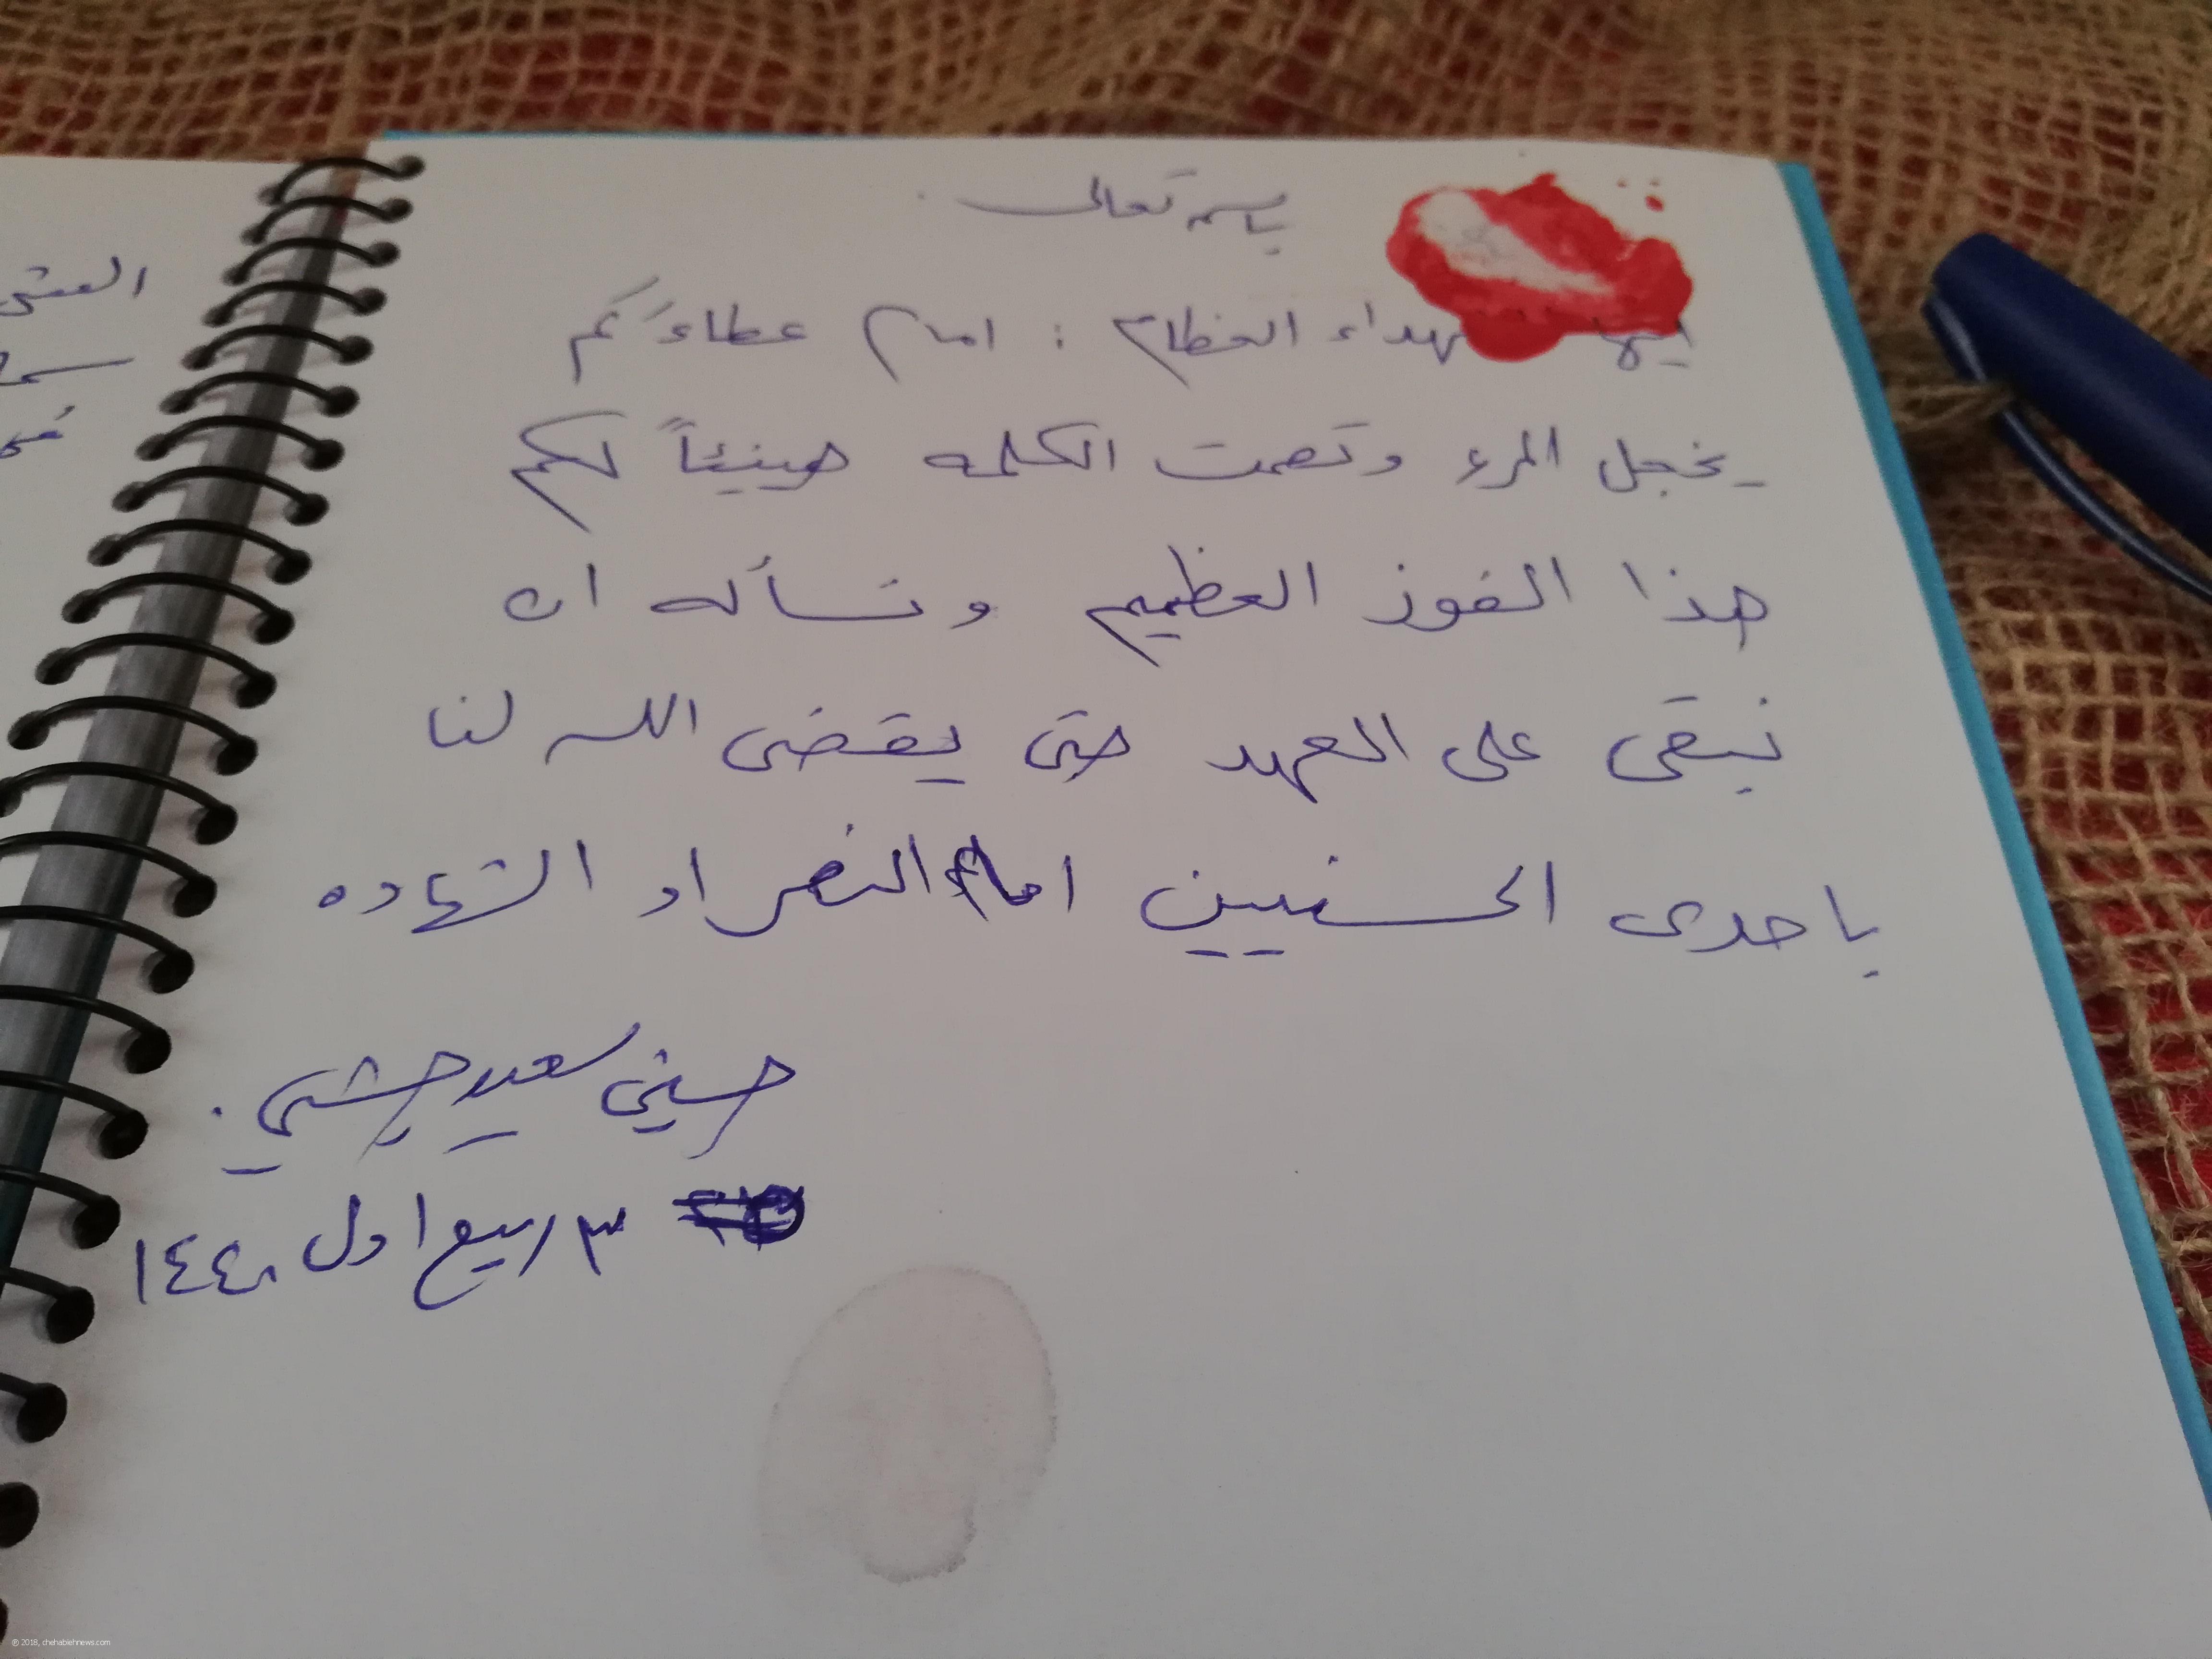 باسمه تعالى.
ايها الشهداء العظام : امام عطاءكم
يخجل المرء وتصمت الكلمه هنيئاً لكم
هذا الفوز العظيم ونسأله ان
نبقى على العهد حتى يقضى الله لنا
باحدى الحسنيين اما النصر او الشهاده
حسين سعيد جشي.
٣ ربيع اول ١٤٤٠
® 2018, chehabiehnews.com